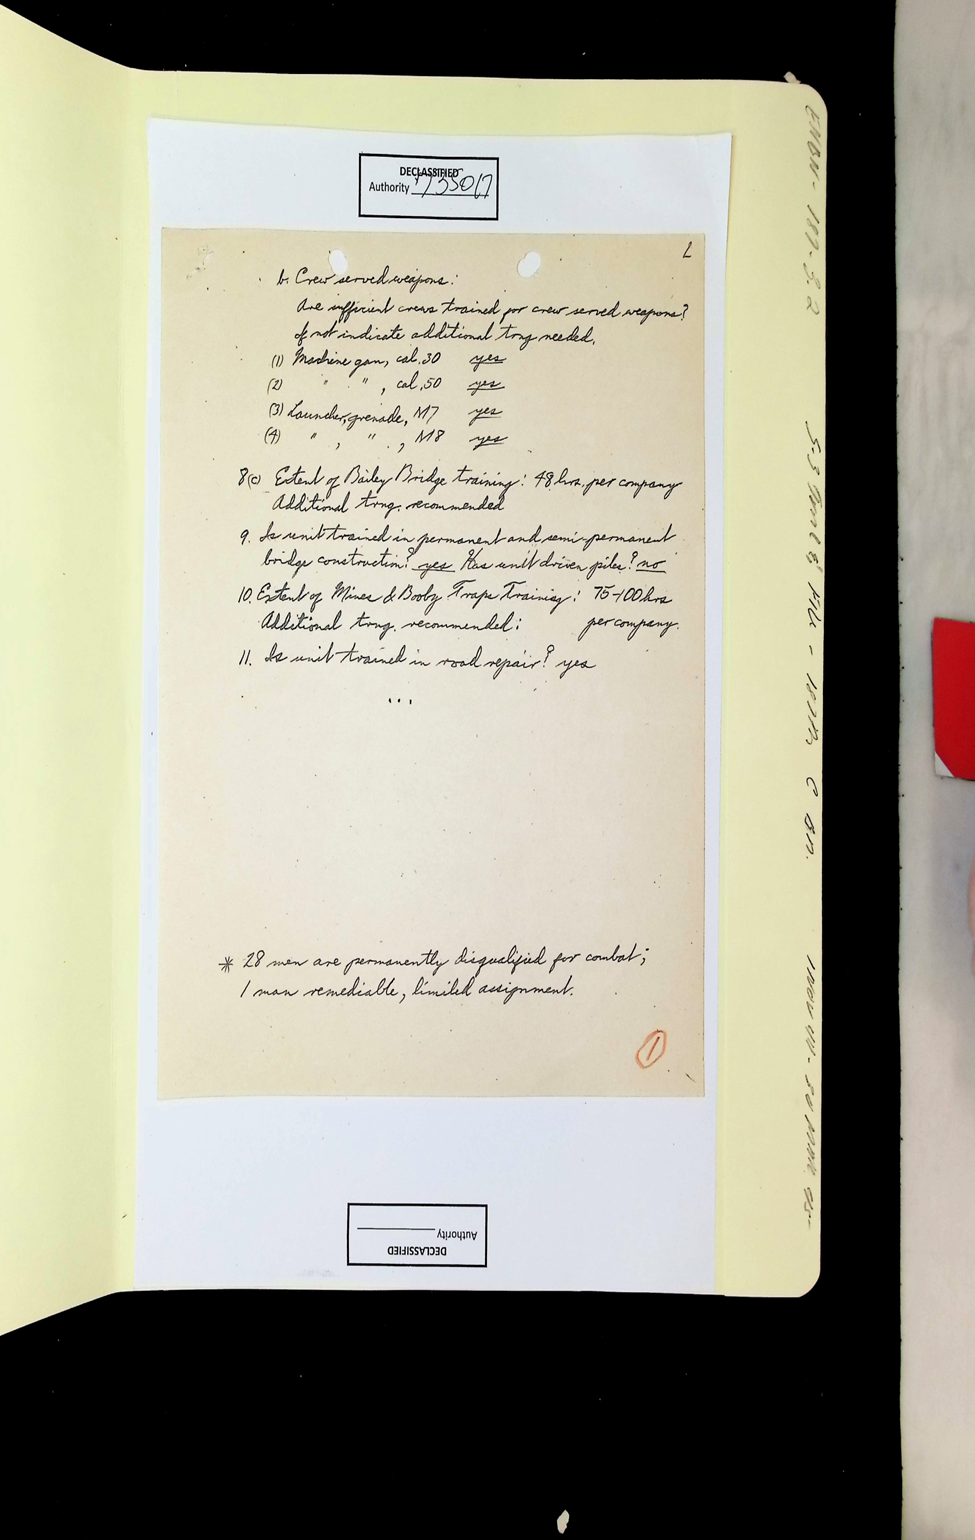 DECLASSIFIED
Authority 735017
L
b. Crew served weapons:
Are sufficient crews trained for crew served weapons?
If not indicate additional trng needed.
(1) Machine gun, cal .30 yes
(2) " " , cal .50 yes
(3) Launcher, grenade, M7 yes
(4) " , " , M8 yes
8(c) Extent of Bailey Bridge training: 48 hrs. per company
Additional trng. recommended
9. Is unit trained in permanent and semi-permanent
bridge construction? yes Has unit driven piles? no
10. Extent of Mines & Booby Traps Training: 75-100 hrs
Additional trng. recommended: per company.
11. Is unit trained in road repair? yes
...
* 28 men are permanently disqualified for combat;
1 man remediable, limited assignment.
1
DECLASSIFIED
Authority
ENBN-187-3.2
S-3 File - 187th C BN.